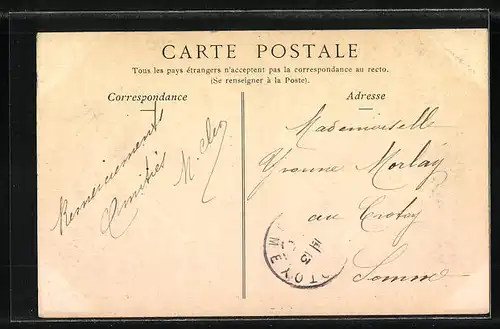 CARTE POSTALE
Tous les pays étrangers n'acceptent pas la correspondance au recto.
(Se renseigner à la Poste).
Correspondance
Remerciements
Amitiés
Adresse
Mademoiselle
Yvonne Morlay
au Crotoy
Somme